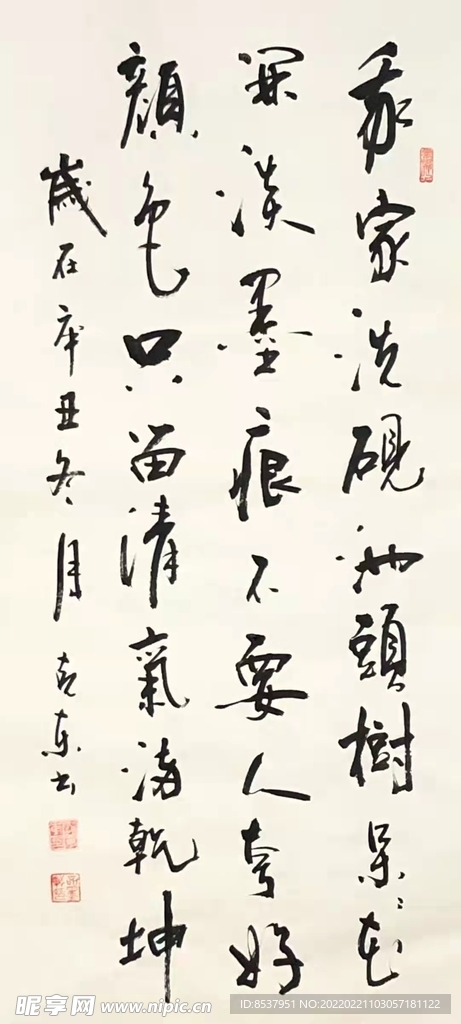 我家洗硯池頭樹朵〻花
開淡墨痕不要人夸好
顏色只留清氣滿乾坤
歲在辛丑冬月
东书
昵享网 www.nipic.cn
ID:8537951 NO:20220221103057181122